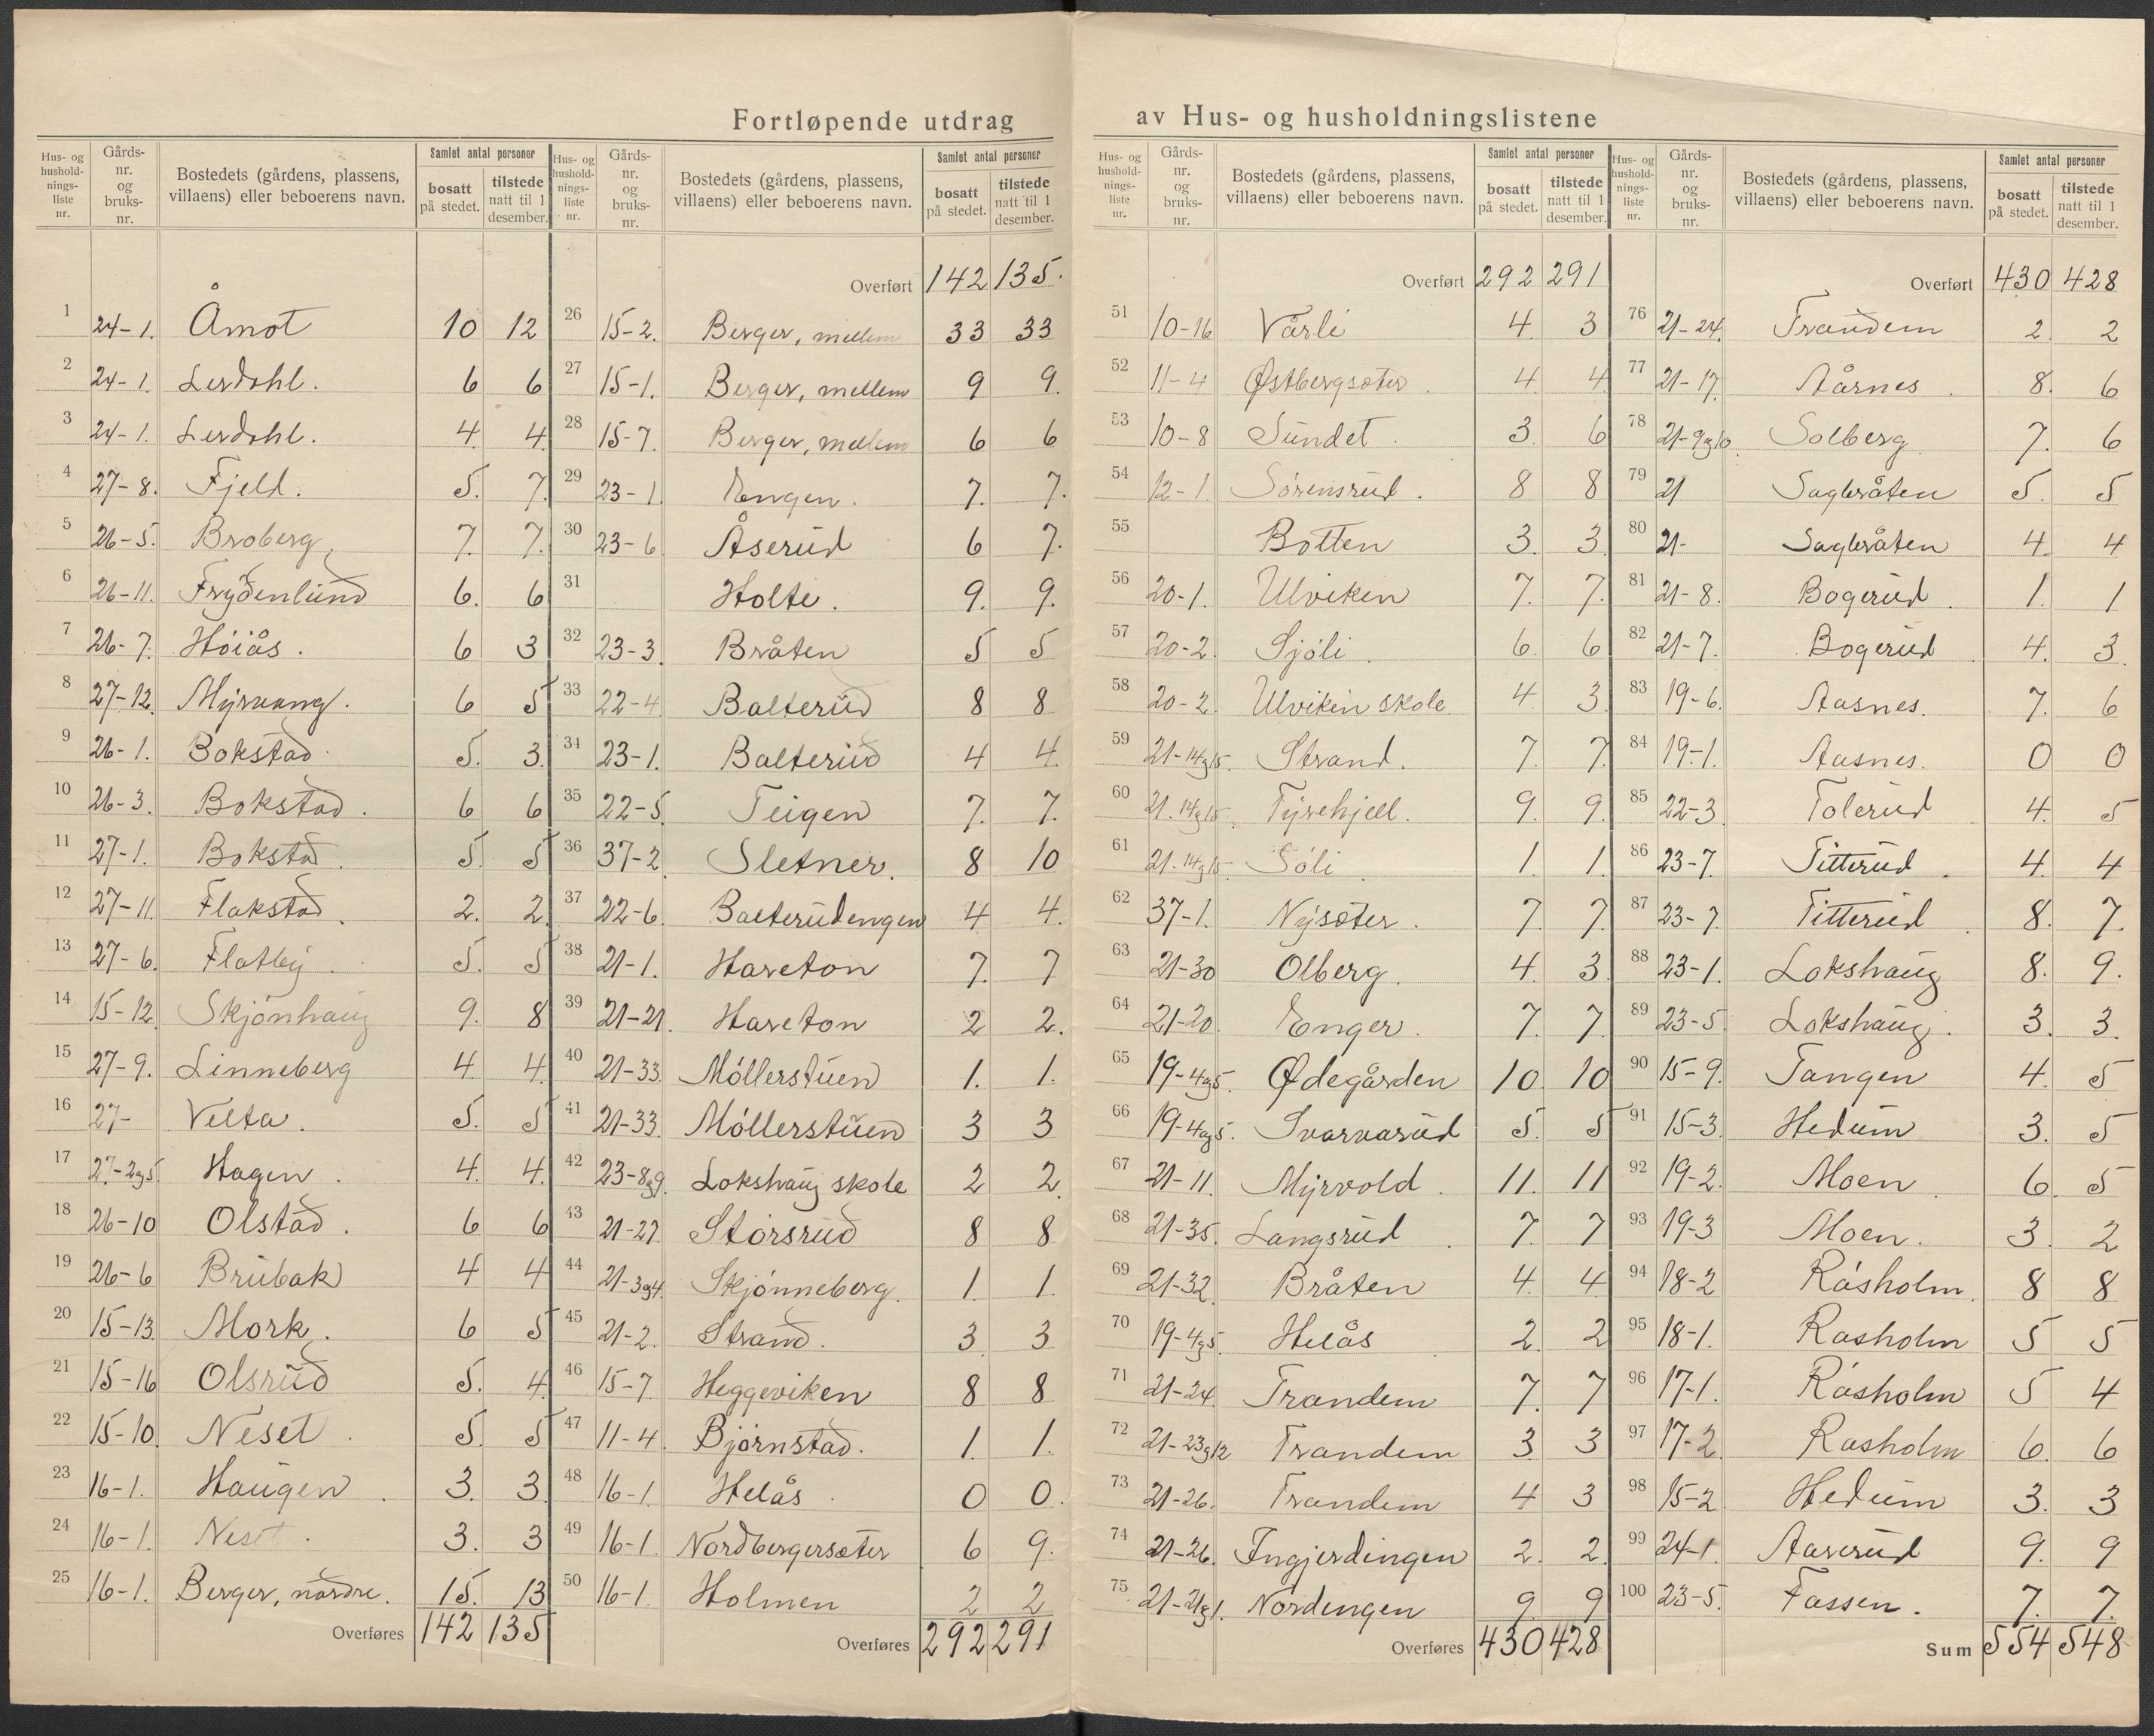 Fortløpende utdrag av Hus- og husholdningslistene
Hus- og husholdningsliste nr. | Gårds- nr. og bruks- nr. | Bostedets (gårdens, plassens, villaens) eller beboerens navn. | Samlet antal personer: bosatt på stedet. | tilstede natt til 1 desember.
1 24-1. Åmot 10 12
2 24-1. Lerdahl. 6 6
3 24-1. Lerdahl. 4. 4.
4 27-8. Fjeld. 5. 7.
5 26-5. Broberg. 7. 7.
6 26-11. Frydenlund 6. 6
7 26-7. Høiås. 6 3
8 27-12. Myrvang. 6 5
9 26-1. Bokstad. 5. 3.
10 26-3. Bokstad. 6 6
11 27-1. Bokstad. 5. 5
12 27-11. Flakstad. 2. 2.
13 27-6. Flatby. 5. 5
14 15-12. Skjønhaug 9. 8
15 27-9. Linneberg 4. 4.
16 27- Velta. 5. 5
17 27-2og5. Hagen. 4. 4.
18 26-10 Olstad. 6 6
19 26-6 Brubak 4 4
20 15-13. Mork. 6 5
21 15-16 Olsrud 5. 4.
22 15-10. Neset. 5. 5
23 16-1. Haugen. 3. 3.
24 16-1. Neset. 3. 3
25 16-1. Berger, nordre. 15. 13
Overføres 142 135
Hus- og husholdningsliste nr. | Gårds- nr. og bruks- nr. | Bostedets (gårdens, plassens, villaens) eller beboerens navn. | Samlet antal personer: bosatt på stedet. | tilstede natt til 1 desember.
Overført 142 135.
26 15-2. Berger, mellem 33 33
27 15-1. Berger, mellem 9 9.
28 15-7. Berger, mellem 6 6
29 23-1. Engen. 7. 7.
30 23-6 Åserud 6 7.
31 Holte. 9. 9.
32 23-3. Bråten 5 5
33 22-4 Balterud 8 8
34 23-1. Balterud 4 4.
35 22-5. Teigen 7. 7.
36 37-2. Sletner. 8 10
37 22-6. Balterudengen 4 4.
38 21-1. Hareton 7. 7
39 21-21. Hareton 2 2.
40 21-33. Møllerstuen 1. 1.
41 21-33. Møllerstuen 3 3
42 23-8og9. Lokshaug skole 2 2.
43 21-27. Storsrud 8 8
44 21-3og4. Skjønneberg. 1. 1.
45 21-2. Strand. 3. 3
46 15-7. Heggeviken 8 8
47 11-4. Bjørnstad. 1. 1.
48 16-1. Helås. 0 0.
49 16-1. Nordbergersæter 6 9.
50 16-1. Holmen 2 2
Overføres 292 291
Hus- og husholdningsliste nr. | Gårds- nr. og bruks- nr. | Bostedets (gårdens, plassens, villaens) eller beboerens navn. | Samlet antal personer: bosatt på stedet. | tilstede natt til 1 desember.
Overført 292 291
51 10-16 Vårli 4. 3
52 11-4 Østbergsæter. 4. 4
53 10-8 Sundet. 3. 6
54 12-1. Sørensrud. 8 8
55 Botten 3. 3.
56 20-1. Ulviken 7. 7.
57 20-2. Sjøli. 6. 6
58 20-2. Ulviken skole. 4 3.
59 21-14og15. Strand. 7. 7.
60 21.14og15. Tyrehjell. 9. 9.
61 21.14og15. Søli. 1. 1.
62 37-1. Nysæter. 7. 7.
63 21-30 Olberg. 4. 3.
64 21-20. Enger. 7. 7
65 19-4og5. Ødegården 10. 10
66 19-4og5. Svarvarud 5. 5
67 21-11. Myrvold. 11. 11
68 21-35. Langsrud. 7. 7
69 21-32. Bråten 4. 4
70 19-4og5. Helås 2. 2
71 21-24 Trandem 7. 7
72 21-23og12 Trandem 3. 3
73 21-26. Trandem 4 3
74 21-26. Ingjerdingen 2. 2.
75 21-21og1. Nordengen 9. 9
Overføres 430 428
Hus- og husholdningsliste nr. | Gårds- nr. og bruks- nr. | Bostedets (gårdens, plassens, villaens) eller beboerens navn. | Samlet antal personer: bosatt på stedet. | tilstede natt til 1 desember.
Overført 430 428
76 21-24. Trandem 2. 2
77 21-17. Aårnes. 8. 6
78 21-9og10. Solberg. 7. 6
79 21 Sagbråten 5. 5
80 21- Sagbråten 4. 4
81 21-8. Bogerud. 1. 1
82 21-7. Bogerud. 4. 3.
83 19-6. Aasnes. 7. 6
84 19-1. Aasnes. 0 0
85 22-3. Tolerud. 4. 5
86 23-7. Titterud. 4. 4
87 23-7. Titterud. 8. 7.
88 23-1. Lokshaug 8. 9.
89 23-5. Lokshaug. 3. 3.
90 15-9. Tangen 4. 5
91 15-3. Hedum 3. 5
92 19-2. Moen. 6. 5
93 19-3 Moen. 3. 2
94 18-2 Råsholm. 8 8
95 18-1. Rasholm 5 5
96 17-1. Råsholm 5 4
97 17-2. Rasholm 6. 6
98 15-2. Hedum 3. 3
99 24-1. Aaserud 9. 9
100 23-5. Fassen. 7. 7.
Sum 554 548